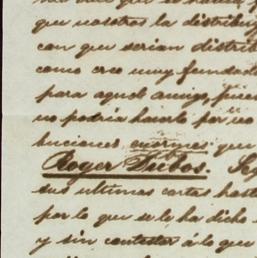 que nosotros la distribuy
con que serian distrib
como creo muy fundad
para aquel amigo, quien
no podria hacerlo por no
buciones enormes que
Roger Dubos. Seg
sus ultimas cartas hast
por lo que se le ha dicho
y sin contestar á lo que